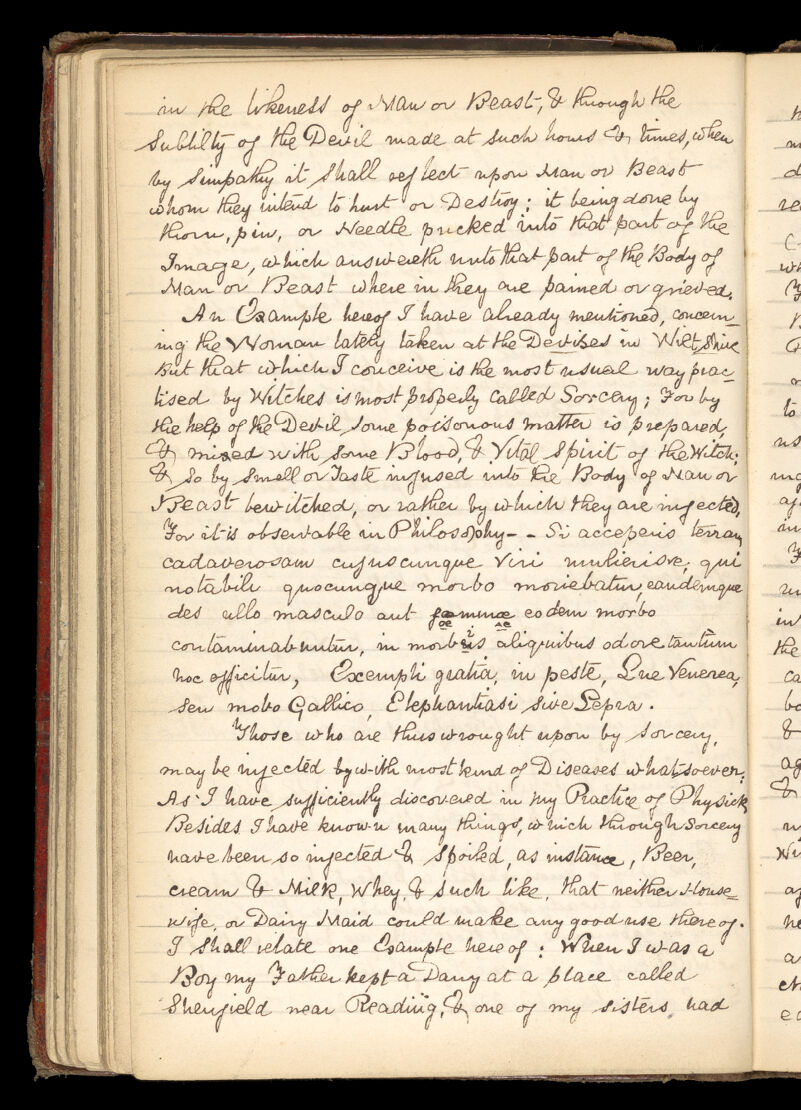 in the likeness of Man or Beast, & through the
Subtilty of the Devil made at such hours & times, when
by Simpathy it shall reflect upon Man or Beast
whom they intend to hurt or Destroy: it being done by
thorn, pin, or Needle pricked into that part of the
Image, which answereth unto that part of the Body of
Man or Beast where in they are pained or grieved.
An Example hereof I have already mentioned, concern-
ing the Woman lately taken at the Devises in Wiltshire
But that which I conceive is the most usual way prac-
tised by Witches is most properly called Sorcery; For by
the help of the Devil some poisonous matter is prepared,
& mixed with some Blood, & Vital Spirit of the Witch;
& so by Smell or Taste infused into the Body of Man or
Beast bewitched, or rather by which they are injected,
For it is observable in Philosophy - - Si acceperis terram
cadaverosam cujuscunque viri mulierisve, qui
notabili quocunque morbo moriebatur, eandemque
des ullo masculo aut fœminæ eodem morbo
contaminabuntur, in morbis aliquibus odore tantum
hoc efficitur, Exempli gratia, in peste, Lue Venerea,
seu mobo Gallico, Elephantiasi sive Lepra.
Those who are thus wrought upon by Sorcery,
may be injected by with most kind of Diseases whatsoever;
As I have sufficiently discovered in my Practice of Physick
Besides I have known many things, which through Sorcery
have been so injected & Spoiled, as instance, Beer,
cream & Milk, Whey, & such like, that neither House-
wife, or Dairy Maid could make any good use thereof.
I shall relate one Example hereof: When I was a
Boy my Father kept a Dairy at a place called
Shenfield near Reading, & one of my sisters had